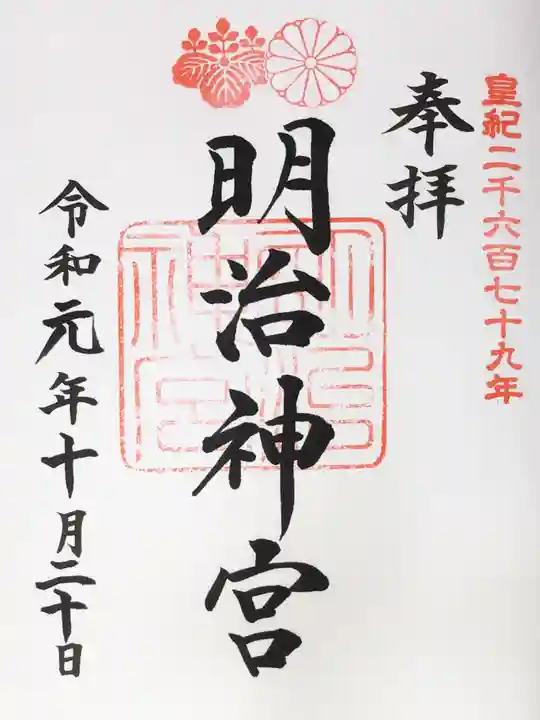 皇紀二千六百七十九年
奉拝
明治神宮
令和元年十月二十日
明治神宮